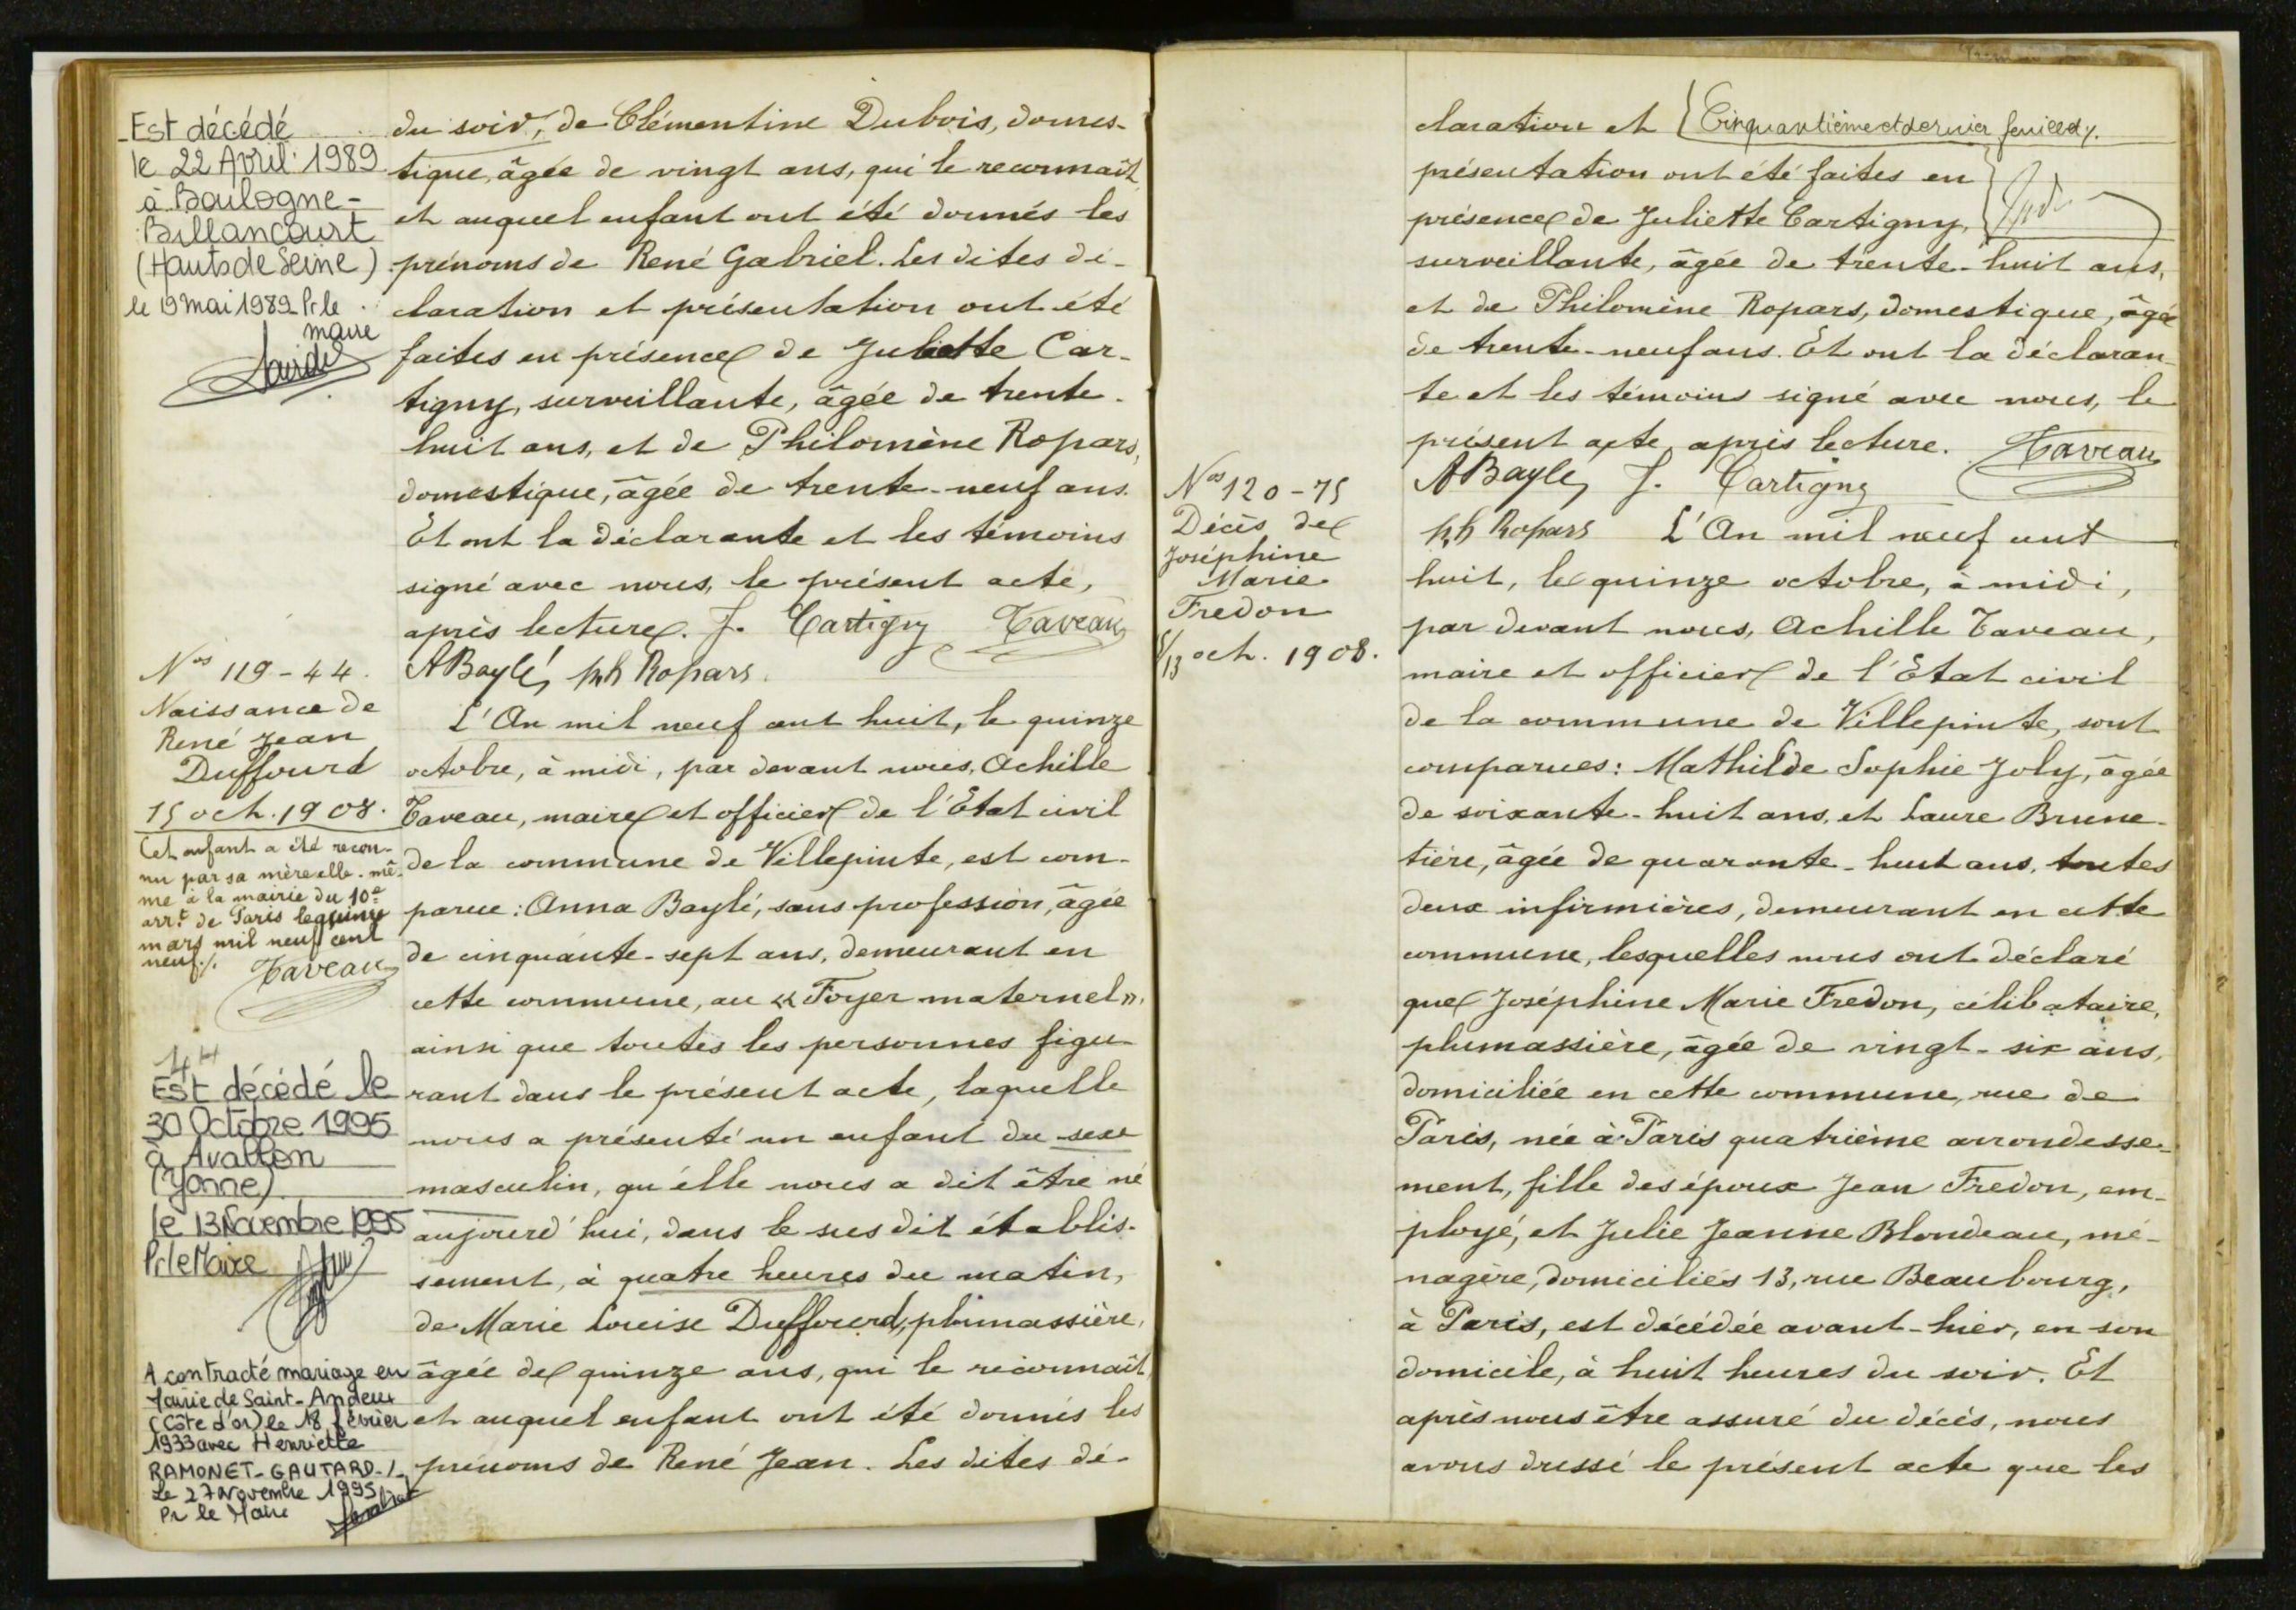 Est décédé
le 22 Avril 1989
à Boulogne-
Billancourt
(Hauts de Seine)
le 19 mai 1989 Pr le
maire
du soir, de Clémentine Dubois, domes-
tique, âgée de vingt ans, qui le reconnaît,
et auquel enfant ont été donnés les
prénoms de René Gabriel. Les dites dé-
claration et présentation ont été
faites en présence de Juliette Car-
tigny, surveillante, âgée de trente-
huit ans, et de Philomène Ropars,
domestique, âgée de trente-neuf ans.
Et ont la déclarante et les témoins
signé avec nous, le présent acte,
après lecture. J. Cartigny Taveau
ABaylé ph Ropars.
Nos 119-44.
Naissance de
René Jean
Duffourd
15 oct. 1908.
Cet enfant a été recon-
nu par sa mère elle-mê-
me à la mairie du 10e
arrt de Paris le quinze
mars mil neuf cent
neuf./.
Taveau
44
Est décédé le
30 Octobre 1995
à Avallon
(Yonne)
le 13 Novembre 1995
Pr le Maire
A contracté mariage en
Mairie de Saint-Andeux
(Côte d'or) le 18 février
1933 avec Henriette
RAMONET-GAUTARD-/-
Le 27 Novembre 1995
Pr le Maire
L'An mil neuf cent huit, le quinze
octobre, à midi, par devant nous, Achille
Taveau, maire et officier de l'Etat civil
de la commune de Villepinte, est com-
parue: Anna Baylé, sans profession, âgée
de cinquante-sept ans, demeurant en
cette commune, au « Foyer maternel »,
ainsi que toutes les personnes figu-
rant dans le présent acte, laquelle
nous a présenté un enfant du sexe
masculin, qu'elle nous a dit être né
aujourd'hui, dans le sus dit établis-
sement, à quatre heures du matin,
de Marie Louise Duffourd, plumassière,
âgée de quinze ans, qui le reconnaît,
et auquel enfant ont été donnés les
prénoms de René Jean. Les dites dé-
claration et Cinquantième et dernier feuillet./.
présentation ont été faites en
présence de Juliette Cartigny,
surveillante, âgée de trente-huit ans,
et de Philomène Ropars, domestique, âgée
de trente-neuf ans. Et ont la déclaran-
te et les témoins signé avec nous, le
présent acte, après lecture. Taveau
ABaylé J. Cartigny
ph Ropars L'An mil neuf cent
Nos 120-75
Décès de
Joséphine
Marie
Fredon
13 oct. 1908.
huit, le quinze octobre, à midi,
par devant nous, Achille Taveau,
maire et officier de l'Etat civil
de la commune de Villepinte, sont
comparues: Mathilde Sophie Joly, âgée
de soixante-huit ans, et Laure Brune-
tière, âgée de quarante-huit ans, toutes
deux infirmières, demeurant en cette
commune, lesquelles nous ont déclaré
que Joséphine Marie Fredon, célibataire,
plumassière, âgée de vingt-six ans,
domiciliée en cette commune, rue de
Paris, née à Paris quatrième arrondisse-
ment, fille des époux Jean Fredon, em-
ployé, et Julie Jeanne Blondeau, mé-
nagère, domiciliés 13, rue Beaubourg,
à Paris, est décédée avant-hier, en son
domicile, à huit heures du soir. Et
après nous être assuré du décès, nous
avons dressé le présent acte que les